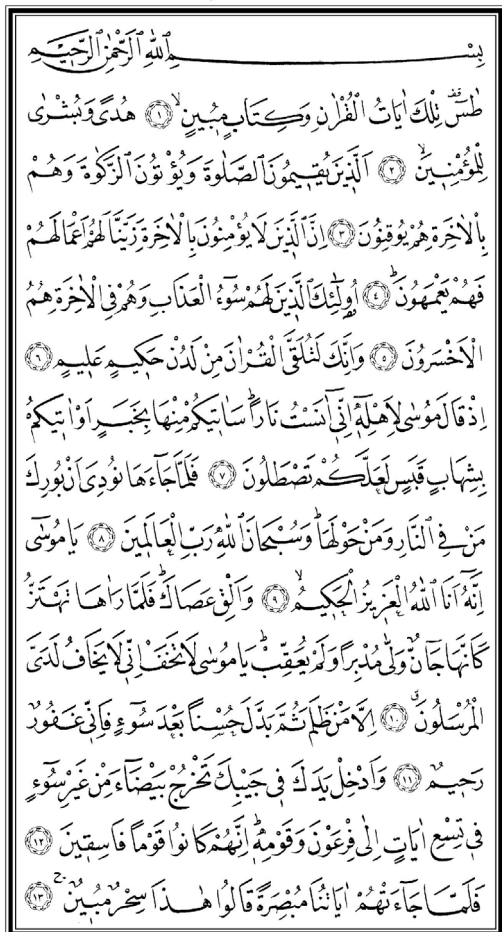 بِسْمِ اللّٰهِ الرَّحْمٰنِ الرَّحِيمِ
طٰسٓ تِلْكَ اٰيَاتُ الْقُرْاٰنِ وَكِتَابٍ مُبِينٍۙ ﴿١﴾ هُدًى وَبُشْرٰى
لِلْمُؤْمِنِينَۙ ﴿٢﴾ اَلَّذِينَ يُقِيمُونَ الصَّلٰوةَ وَيُؤْتُونَ الزَّكٰوةَ وَهُمْ
بِالْاٰخِرَةِ هُمْ يُوقِنُونَ ﴿٣﴾ اِنَّ الَّذِينَ لَا يُؤْمِنُونَ بِالْاٰخِرَةِ زَيَّنَّا لَهُمْ اَعْمَالَهُمْ
فَهُمْ يَعْمَهُونَۜ ﴿٤﴾ اُو۬لٰٓئِكَ الَّذِينَ لَهُمْ سُٓوءُ الْعَذَابِ وَهُمْ فِي الْاٰخِرَةِ هُمُ
الْاَخْسَرُونَ ﴿٥﴾ وَاِنَّكَ لَتُلَقَّى الْقُرْاٰنَ مِنْ لَدُنْ حَكِيمٍ عَلِيمٍ ﴿٦﴾
اِذْ قَالَ مُوسٰى لِاَهْلِهِٓ اِنِّٓي اٰنَسْتُ نَارًاۜ سَاٰتِيكُمْ مِنْهَا بِخَبَرٍ اَوْ اٰتِيكُمْ
بِشِهَابٍ قَبَسٍ لَعَلَّكُمْ تَصْطَلُونَ ﴿٧﴾ فَلَمَّا جَٓاءَهَا نُودِيَ اَنْ بُورِكَ
مَنْ فِي النَّارِ وَمَنْ حَوْلَهَاۜ وَسُبْحَانَ اللّٰهِ رَبِّ الْعَالَمِينَ ﴿٨﴾ يَا مُوسٰٓى
اِنَّهُٓ اَنَا اللّٰهُ الْعَزِيزُ الْحَكِيمُۙ ﴿٩﴾ وَاَلْقِ عَصَاكَۜ فَلَمَّا رَاٰهَا تَهْتَزُّ
كَاَنَّهَا جَٓانٌّ وَلّٰى مُدْبِرًا وَلَمْ يُعَقِّبْۜ يَا مُوسٰى لَا تَخَفْ اِنِّي لَا يَخَافُ لَدَيَّ
الْمُرْسَلُونَۗ ﴿١٠﴾ اِلَّا مَنْ ظَلَمَ ثُمَّ بَدَّلَ حُسْنًا بَعْدَ سُٓوءٍ فَاِنِّي غَفُورٌ
رَحِيمٌ ﴿١١﴾ وَاَدْخِلْ يَدَكَ فِي جَيْبِكَ تَخْرُجْ بَيْضَٓاءَ مِنْ غَيْرِ سُٓوءٍ
فِي تِسْعِ اٰيَاتٍ اِلٰى فِرْعَوْنَ وَقَوْمِهِۜ اِنَّهُمْ كَانُوا قَوْمًا فَاسِقِينَ ﴿١٢﴾
فَلَمَّا جَٓاءَتْهُمْ اٰيَاتُنَا مُبْصِرَةً قَالُوا هٰذَا سِحْرٌ مُبِينٌۚ ﴿١٣﴾